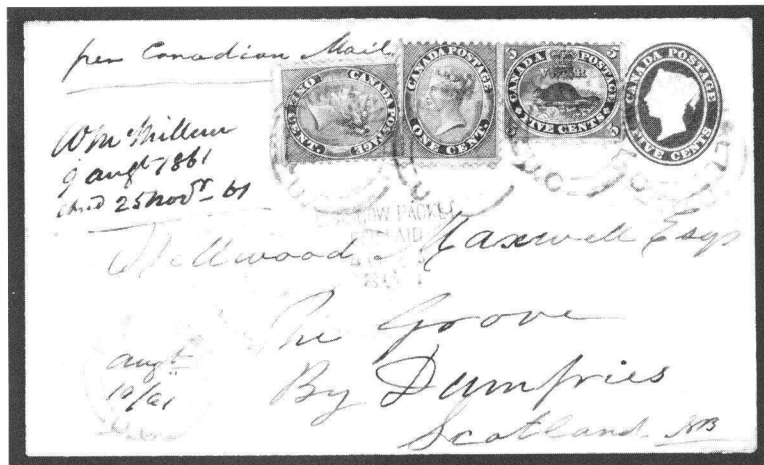 per Canadian Mail
CANADA POSTAGE
ONE CENT.
CANADA POSTAGE
ONE CENT.
5 CANADA POSTAGE 5
5 FIVE CENTS 5
CANADA POSTAGE
FIVE CENTS
Wm McMillan
9 augt 1861
25 Novr 61
PACKET
PAID
Wellwood Maxwell Esqr
The Grove
By Dumfries
Scotland NB
augt
10/61